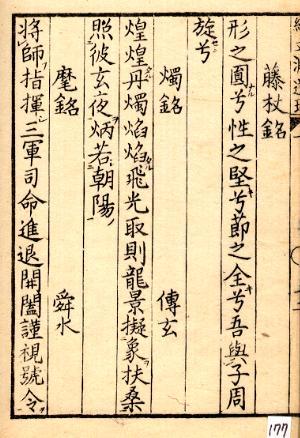 藤杖銘
形之圓兮性之堅兮節之全兮吾與子周
旋兮
燭銘　傳玄
煌煌丹燭焰焰飛光取則龍景擬象扶桑
照彼玄夜炳若朝陽
麾銘　舜水
將師指揮三軍司命進退開闔謹視號令
177